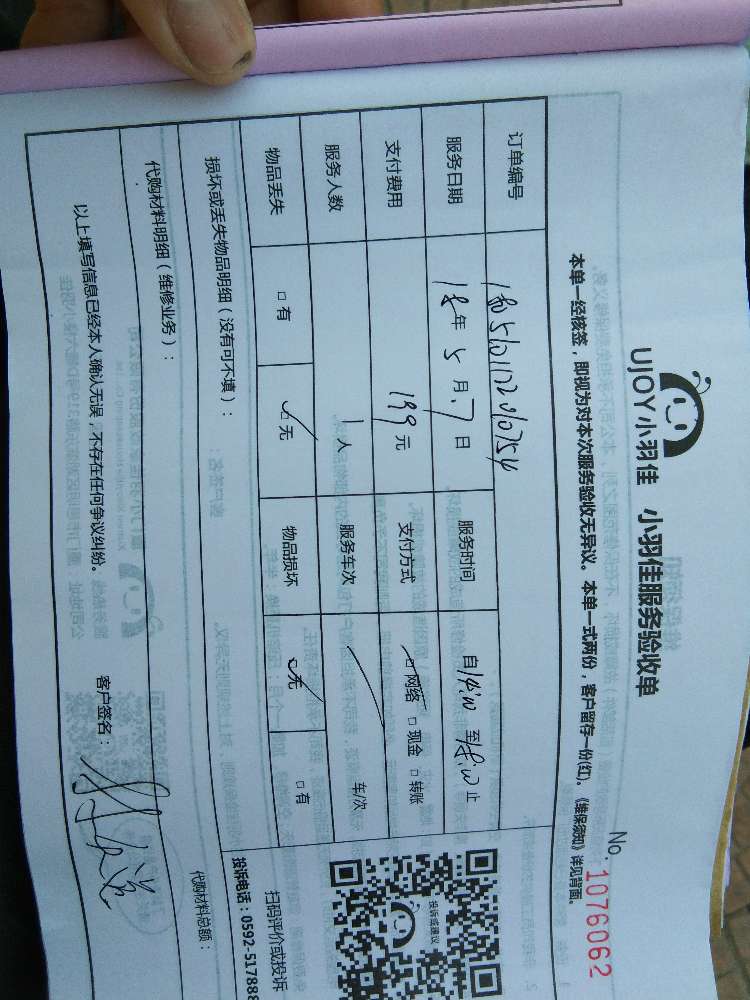 UJOY小羽佳 小羽佳服务验收单
No. 1076062
本单一经核签，即视为对本次服务验收无异议。本单一式两份，客户留存一份(红)。《维保须知》详见背面。
订单编号
服务日期 18年 5月 7日 服务时间 自14:00至18:00止
支付费用 199元 支付方式 □网络 □现金 □转账
服务人数 1人 服务车次 车/次
物品丢失 □有 □无 物品损坏 □无 □有
投诉或建议
扫码评价或投诉
投诉电话：0592-51788
损坏或丢失物品明细（没有可不填）：
代购材料明细（维修业务）： 代购材料总额：
以上填写信息已经本人确认无误，不存在任何争议纠纷。 客户签名：